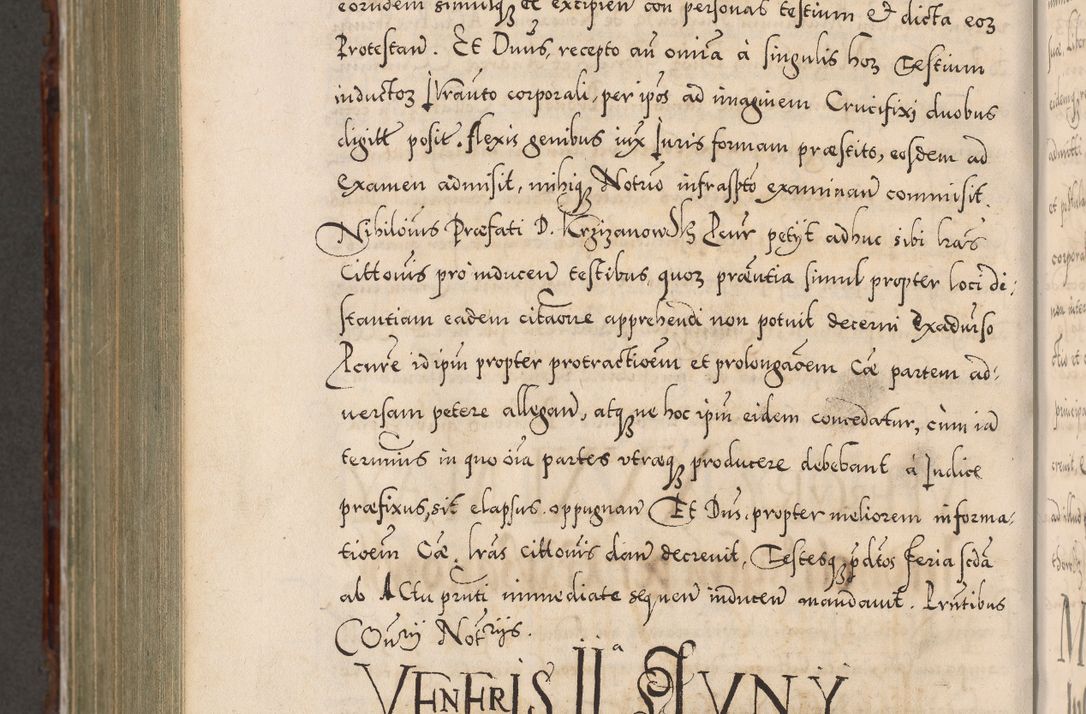 eorundem simulq; et excipien con personas testium et dicta eoꝝ
Protestan. Et Dnus, recepto aũ omĩa à singulis hoꝝ Testium
inductoꝝ Iuramto corporali, per ip̃os ad imaginem Crucifixi duobus
digitis posit. flexis genibus iux Iuris formam præstito, eosdem ad
Examen admisit, mihiq; Notrio infrascpto examinan commisit.
Nihilõius Præfati D. Krzizanowsk Pcur petyt adhuc sibi lrãs
Cittõuis pro inducen testibus, quoꝝ præntia simul propter loci di:
stantiam eadem citãone apprehendi non potuit decerni Exaduẽrso
Pcure id ip̃m propter protractioẽm et prolongãoem Cæ partem ad:
uersam petere allegan, atq; ne hoc ip̃m eidem concedatur, cùm iã
terminus in quo oĩa partes vtræq; producere debebant à Iudice
præfixus, sit elapsus. oppugnan Et Dñs. propter meliorem informa:
tioẽm Cæ. lrãs Cittõuis dan decreuit, Testesq; p̃dtos feria scđa
ab Actu prñti immediate sequen inducen mandauit. Prñtibus
Cõnrij Notrijs.
VENERIS IIᵃ IVNY